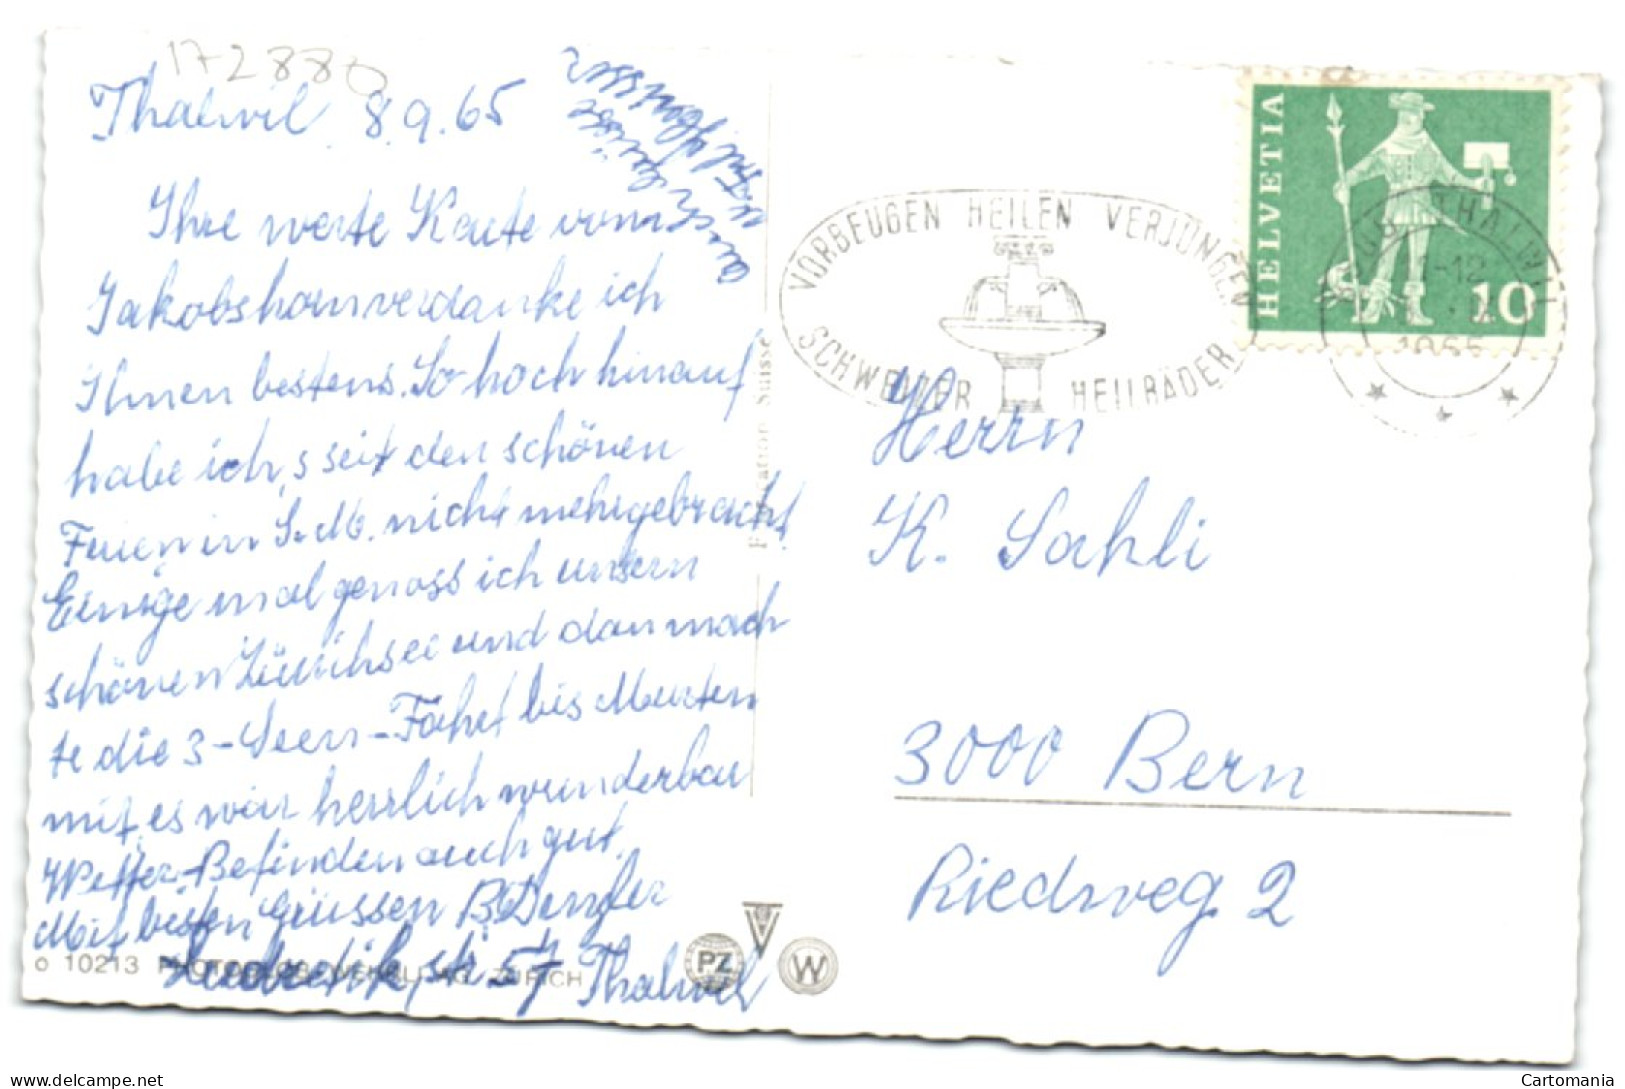 172880
Thalwil 8.9.65
Ihre werte Karte vom
Jakobshorn verdanke ich
Ihnen bestens. So hoch hinauf
habe ich, s seit den schönen
Ferien in S.M. nicht mehr gebracht
Einige mal genoss ich unsern
schönen Zürichsee und dann mach
te die 3-Seen-Fahrt bis Murten
mit, es war herrlich wunderbar
Wetter. Befinden auch gut.
Mit besten Grüssen B. Denzler
str. 57 Thalwil
auch Grüsse
o 10213 PHOTOGLOB-WEHRLI AG, ZÜRICH
PZ
V
W
Fabrication Suisse
VORBEUGEN HEILEN VERJÜNGEN
SCHWEIZER HEILBÄDER
HELVETIA
10
THALWIL
11-12
Herrn
K. Sahli
3000 Bern
Riedweg 2
Cartomania